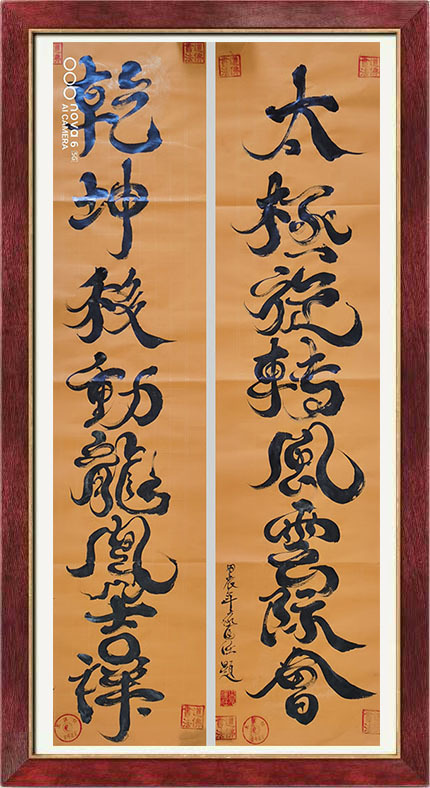 太極旋轉風雲際會
甲辰年
題
乾坤移動龍鳳吉祥
nova 6 5G
AI CAMERA